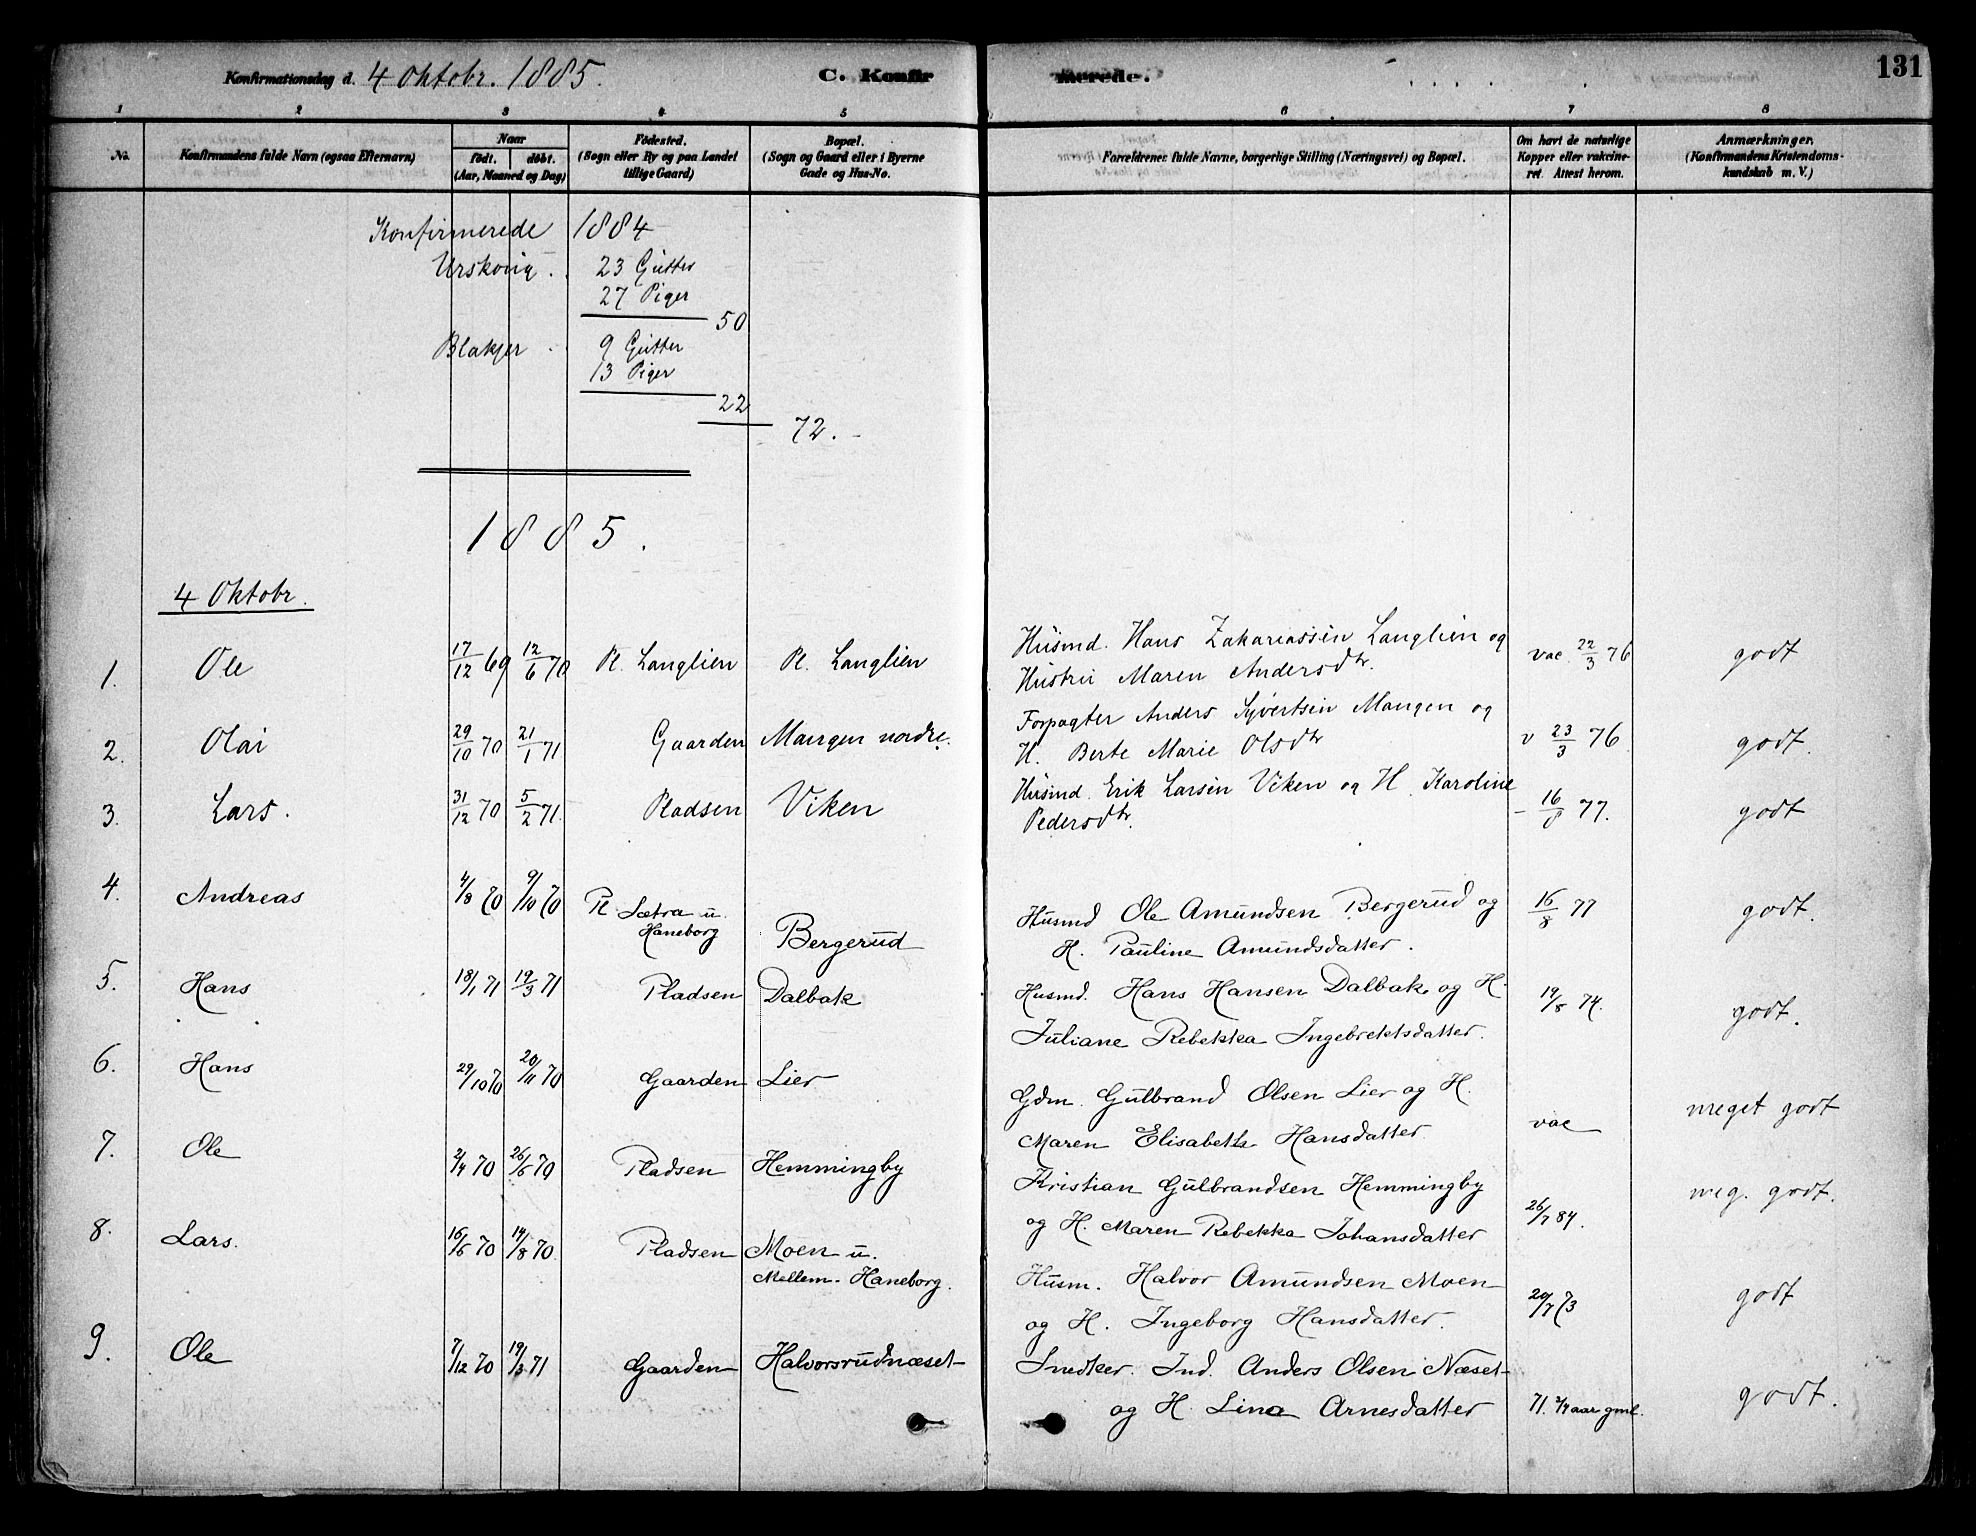 Konfirmationsdag d. 4 Oktobr. 1885. C. Konfirmerede. 131
1 2 3 4 5 6 7 8
No. Konfirmandens fulde Navn (ogsaa Efternavn) Naar født. døbt. (Aar, Maaned og Dag) Fødested. (Sogn eller By og paa Landet tillige Gaard) Bopæl. (Sogn og Gaard eller i Byerne Gade og Hus-No. Forældrenes fulde Navne, borgerlige Stilling (Næringsvei) og Bopæl. Om havt de naturlige Kopper eller vaccineret. Attest herom. Anmærkninger. (Konfirmandens Kristendomskundskab m. V.)
Konfirmerede 1884
Urskoug. . 23 Gutter
27 Piger
50
Blakjer . 9 Gutter
13 Piger
22
72. -
1885.
4 Oktobr.
1. Ole 17/12 69 12/6 70 Pl. Langlien Pl. Langlien Husmd. Hans Zakariassen Langlien og vac. 22/3 76 godt
Hustru Maren Andersdtr.
2. Olai 29/10 70 21/1 71 Gaarden Mangen nordre. Forpagter Anders Syvertsen Mangen og v 23/3 76 godt.
H. Berte Marie Olsdtr
3. Lars. 31/12 70 5/2 71. Pladsen Viken Husmd. Erik Larsen Viken og H. Karoline - 16/8 77. godt
Pedersdtr.
4. Andreas 4/8 70 9/10 70 Pl Sætra u. Haneborg Bergerud Husmd Ole Amundsen Bergerud og 16/8 77 godt.
H. Pauline Amundsdatter.
5. Hans 18/1 71 19/3 71 Pladsen Dalbak Husmd. Hans Hansen Dalbak og H. 19/8 74. godt.
Juliane Rebekka Ingebrektsdatter.
6. Hans 29/10 70 20/11 70 Gaarden Lier Gdm. Gulbrand Olsen Lier og H. vac meget godt
Maren Elisabeth Hansdatter
7. Ole 2/4 70 26/6 70 Pladsen Hemmingby Kristian Gulbrandsen Hemmingby 26/7 84. meg. godt.
og H. Maren Rebekka Johansdatter
8. Lars. 16/6 70 14/8 70. Pladsen Moen u. Husm. Halvor Amundsen Moen 20/7 73 godt
Mellem-Haneborg. og H. Ingeborg Hansdatter.
9. Ole 7/12 70 19/3 71 Gaarden Halvorsrudnæset Snedker. Ind. Anders Olsen Næset 71. 2/4 aar gml. godt.
og H. Lina Arnesdatter